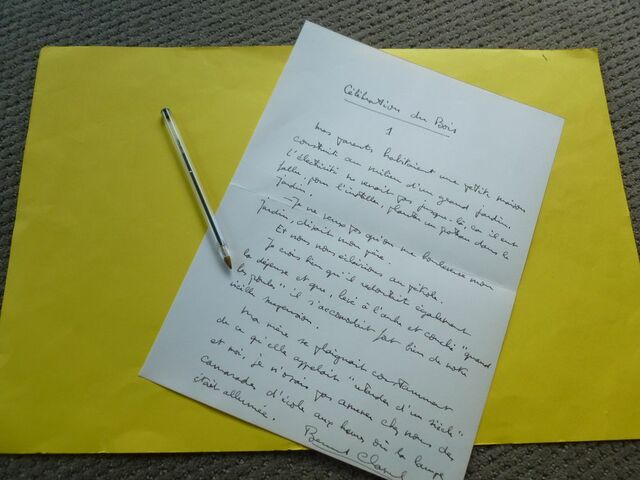 Célébration du Bois
1
Mes parents habitaient une petite maison
construite au milieu d'un grand jardin.
L'électricité ne venait pas jusque-là, car il eut
fallu, pour l'installer, planter un poteau dans le
jardin.
— Je ne veux pas qu'on me bouleverse mon
jardin, disait mon père.
Et nous nous éclairions au pétrole.
Je crois bien qu'il redoutait également
la dépense et que, levé à l'aube et couché "quand
les poules" il s'accommodait fort bien de notre
vieille suspension.
Ma mère se plaignait constamment
de ce qu'elle appelait "retarder d'un siècle"
et moi, je n'osais pas amener chez nous des
camarades d'école aux heures où la lampe
était allumée.
Bernard Clavel